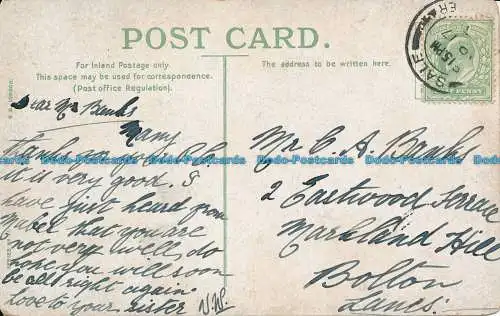 POST CARD.
For Inland Postage only.
This space may be used for correspondence.
(Post office Regulation).
The address to be written here.
SALE
Dear Mr Banks
Many
thanks for P.C.
it is very good. I
have just heard from
Mabel that you are
not very well, do
hope you will soon
be all right again
love to your sister N.W.
Mr C. A. Banks
2 Eastwood Terrace
Markland Hill
Bolton
Lancs:
Postcards-Domain